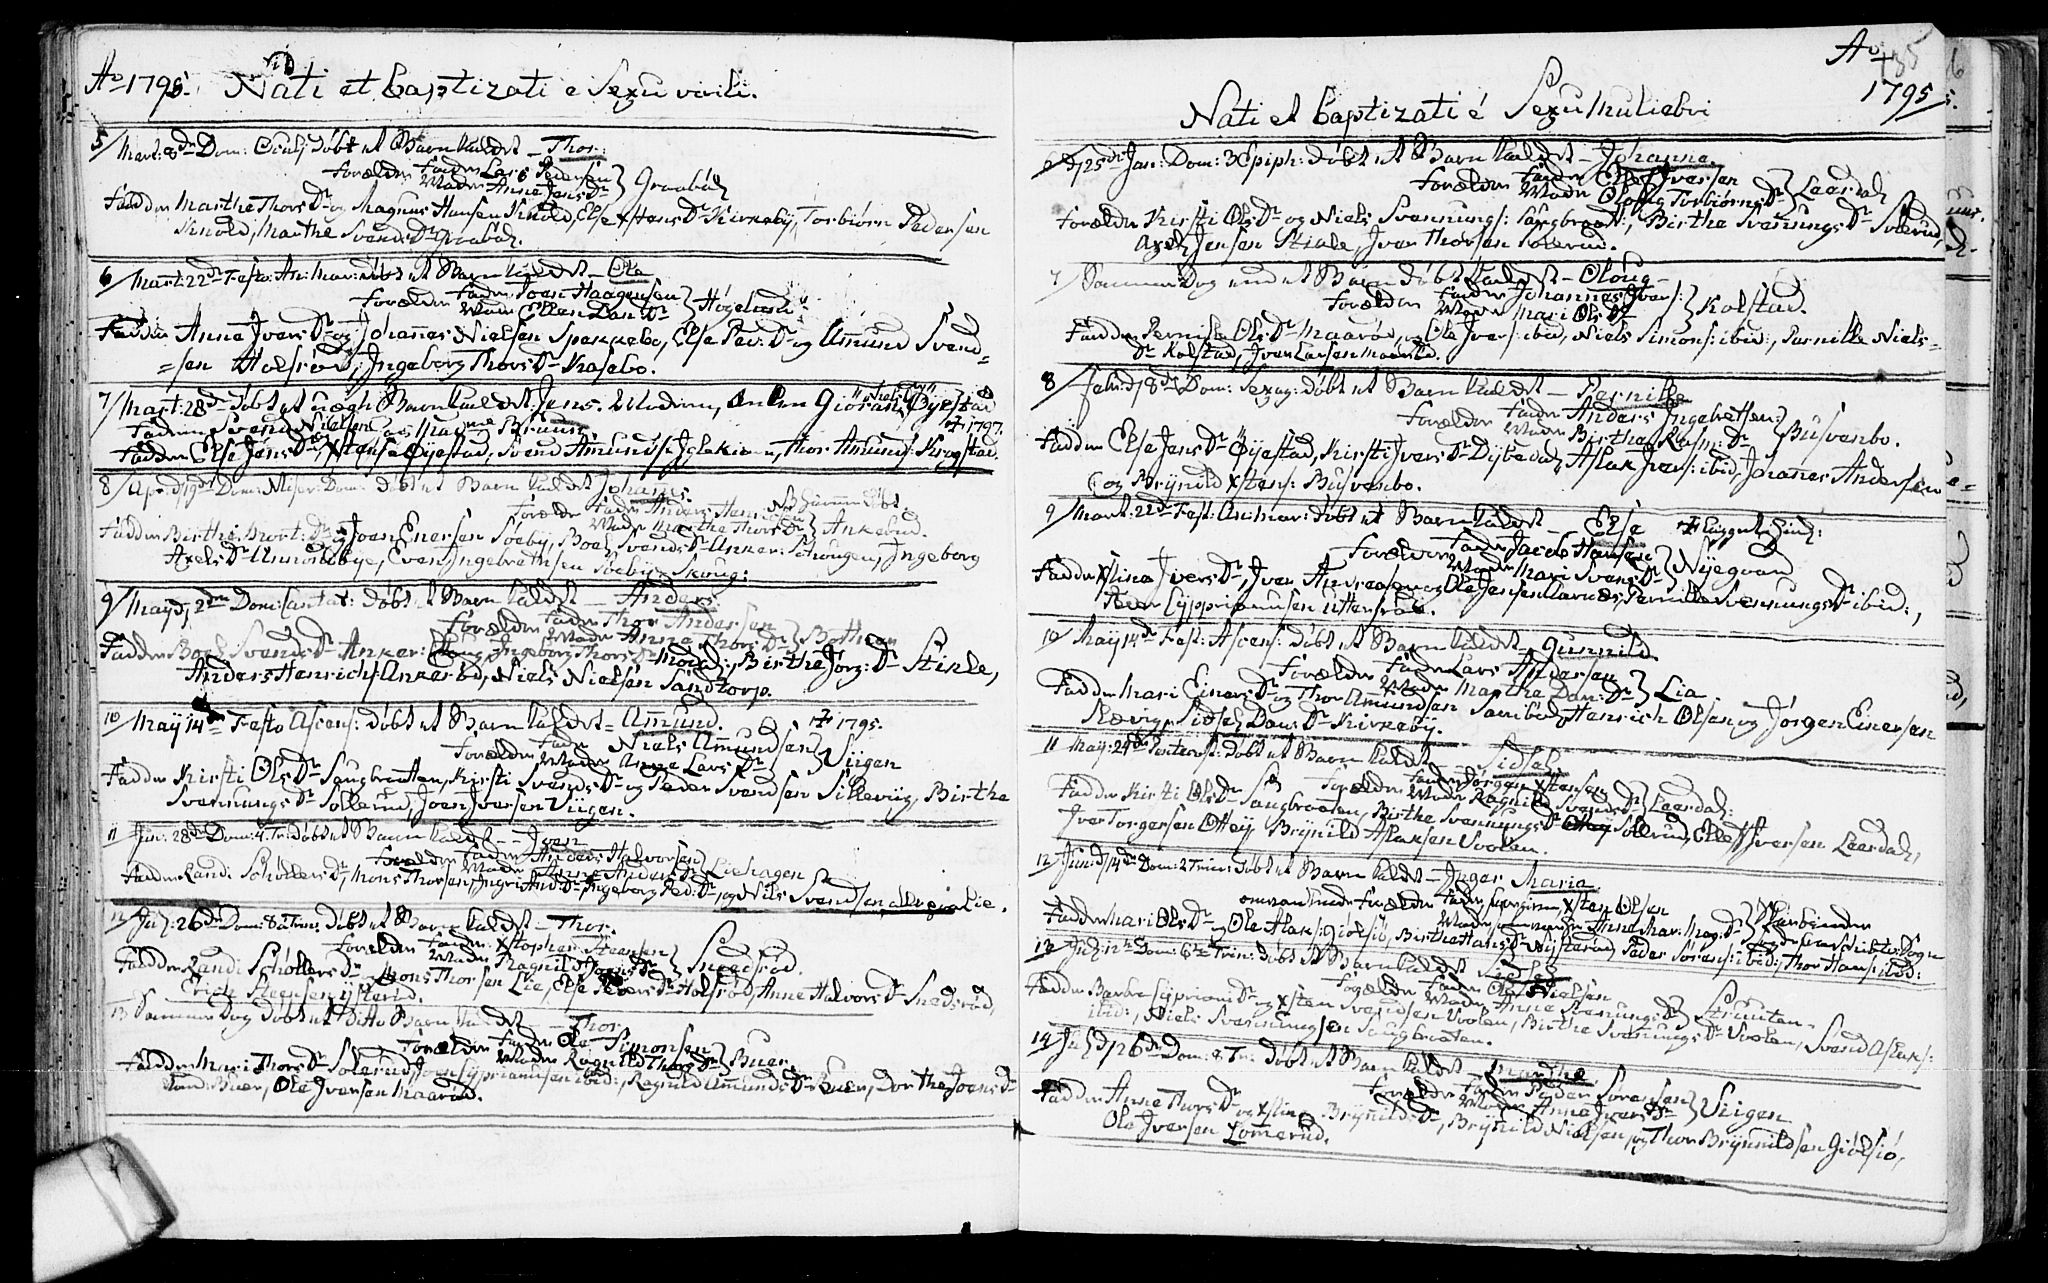 Ao 1795. Nati et baptizati e Sexu virili.
5/ Mart: 8de Dom: Oculj døbt et Barn kaldet – Thor.
Forældre Fader Lars Pedersen
Moder Anne Jens Dr } Graabøl
Faddere Marthe Thors Dr og Magnus Hansen Knold, Else Xstens Dr Kirkebÿ, Torbiørn Pedersen
Knold, Marthe Svends Dr Graabøl.
6/ Mart: 22de Festo An: Mar: døbt et Barn kaldet – Ole
Forældre Fader Joen Haagensen
Moder Ellen Dan: Dr } Høgelund
Faddere Anna Ivers Dr og Johannes Nielsen Spekkebo, Else Ped: Dr og Amund Svend=
=sen Holsrød, Ingeborg Thors Dr Kasebo.
7/ Mart: 28de døbt et uægte Barn kaldet Jens. Moderen, Enken Giøran Niels Dr Øÿestad
Faderen Svend Nielsen ✝ 1797.
Faddere Else Jens Dr, Xsten Øÿestad, Svend Amunds: , Thor Amunds: Krogstad.
8/ Apr: d 19de Dom: Miser: Dom: døbt et Barn kaldet Johans.
Forældre Fader Anders Henrichsen
Moder Marthe Thors Dr } Ankerød.
Faddere Birthe Mort: Dr, Joen Enersen Sœbÿ, Boel Svends Dr Anker: Schougen, Ingeborg
Axels Dr , Even Ingebrethsen Sœbÿe Skoug:
9/ Maÿ d 2den Dom: Cantat: døbt et Barn kaldet – Anders
Forældre Fader Thor Andersen
Moder Anna Thors Dr } Bothnen
Faddere Boel Svends Dr Anker: Skoug, Ingeborg Thors Dr , Birthe Jorg: Dr Stikle,
Anders Henrichs: Ankerød, Niels Nielsen Sandtorp.
10/ Maÿ 14de Festo Ascens: døbt et Barn kaldet – Amund. ✝ 1795.
Forældre Fader Niels Amundsen
Moder Anne Lars Dr } Viigen
Faddere Kirsti Ols Dr Saugbraaten, Kirsti Svends Dr og Peder Svendsen Sillevÿg, Birthe
Svennungs Dr Sollerud, Joen Iversen Viigen.
11 Jun: 28de Dom: 4. Tr: døbt et Barn kaldet – Iver
Forældre Fader Anders Halvorsen
Moder Anne Anders Dr } Liehagen
Faddere Randi Schøllers Dr, Mons Thorsen, Ingri And: Dr, Ingeborg Ped: Dr, og Nils Svendsen alle fra Lie.
12 Jul: 26de Dom: 8 Trin: døbt et Barn kaldet – Thor.
Forældre Fader Xstopher Steensen
Moder Ragnild Joens Dr } Snedsrød.
Faddere Randi Schøllers Dr, Mons Thorsen Lie, Else Peders Dr Holsrød, Anne Halvors Dr Snedsrød,
Erich Steensen ÿsterud.
13 Samme Dag døbt et Ditto Barn kaldet – Thor
Forældre Fader Ole Simonsen
Moder Ragnild Thors Dr } Buer
Faddere Mari Thors Dr Solerud, Joen Sÿprianusen ibid:, Ragnild Amunds Dr Buer, Dorthe Joens Dr
Buer, Ole Iversen Maarød.
Ao
135
1795.
Nati et baptizati é Sexu Muliebri
6 d 25de Jan: Dom: 3 Epiph: døbt et Barn kaldet – Johanna.
Forældre Fader Elef Iversen
Moder Oloug Torbiørns Dr } Leerdal
Forældre Kirsti Ols Dr og Niels Svennungs: Saugbraat:, Birthe Svennungs Dr Solerud,
Axel Jensen Stikle, Iver Thorsen Solerud.
7/ Samme Dag end et Barn døbt kaldet – Oloug –
Forældre Fader Johannes Ivers:
Moder Mari Ols Dr } Kolstad.
Faddere Pernille Ols Dr Maarød, og Ole Ivers: ibid, Niels Simons: ibid:, Pernille Niels=
Dr Kolstad, Iver Larsen Maarød.
8/ Febr: d 8de Dom: Sexag: døbt et Barn kaldet – Pernille
Forældre Fader Anders Ingebretsen
Moder Birthe Rasm: Dr } Busvenbo.
Faddere Else Jens Dr Øÿestad, Kirsti Ivers Dr Dÿbedal, Aslak Ivers: ibid, Johanes Andersen
og Brÿnild Xstens: Busvenbo.
9/ Mart: 22de Fest: An: mar: døbt et Barn kaldet – Else
Forældre Fader Jacob Hansen
Moder Mari Svens Dr } Nÿegaard
Faddere Xstine Ivers Dr, Iver Andreasen og Ole Jensen , Pernille Svennungs Dr ibid:,
Peder Cÿpprianusen Uttersrød.
10/ Maÿ 14de Fest: Ascens: døbt et Barn kaldet – Gunnild.
Forældre Fader Lars Andersen
Moder Marthe Dan: Dr } Lia
Faddere Mari Einers Dr og Thor Amundsen , Henrich Olsen og Jørgen Einersen
Røevig, Sidsel Dan: Dr Kirkebÿ.
11 Maÿ: 24de Pentecost: døbt et Barn kaldet – Sidsel
Forældre Fader Jørgen Xstensen
Moder Ragnild Svends Dr } Leerdal:
Faddere Kirsti Ols Dr Saugbraaten, Birthe Svennungs Dr Sollerud, Elle Iversen Leerdal,
Iver Torgersen Ottÿ Brÿnild Aslaksen Voolen.
12/ Jun: d 14de Dom: 2 Trin: døbt et Barn kaldet – Inger Maria
omvankende Forældre Fader Xsten Olsen
Moder Anne Mar: Mag: Dr
Faddere Mari Ols Dr og Ole Aslaks: Giølsiø, Birthe Hans Dr Wÿsterud, Peder Sørens: ibid:, Thor Hans: ibid:
13/ Jul: 12te Dom: 6te Trin: døbt et Barn kaldet – Sidsel
Forældre Fader Ole Nielsen
Moder Anne Svennungs Dr } Struten
Faddere Barbro Cÿprians Dr og Xsten Svendsen Voolen, Birthe Svennungs Dr Voolen, Svend Aslaks:
ibid:, Niels Svennungsen Saugbraaten.
14 Jul: d 26de Dom: 8. Tr: døbt et Barn kaldet – Marthe
Forældre Fader Peder Sørensen
Moder Anna Ivers Dr } Viigen
Faddere Anne Thors Dr og Xstine Brÿnilds Dr, Brÿnild Nielsen, og Thor Brÿnnildsen Giølsiø,
Ole Iversen Lomerud.